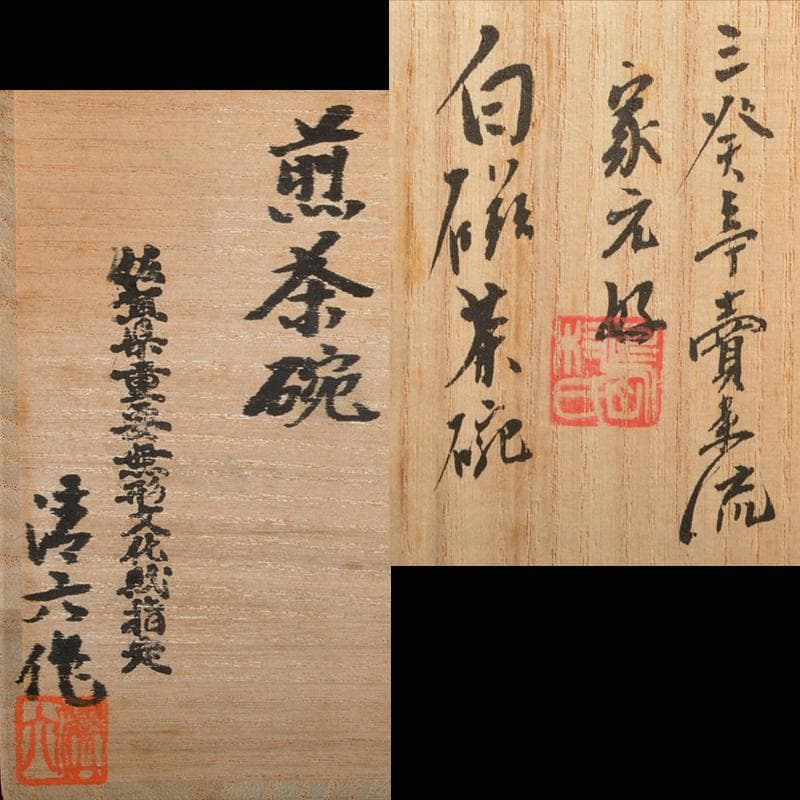 三癸亭賣茶流
家元好
白磁茶碗
煎茶碗
佐賀県重要無形文化財指定
清六作